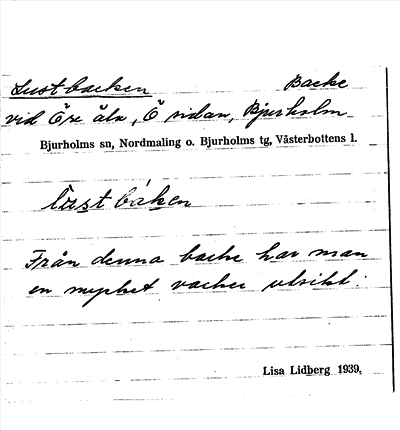 Lustbacken Backe
vid Öre älv, Ö sidan, Bjurholm
Bjurholms sn, Nordmaling o. Bjurholms tg, Västerbottens l.
lust baken
Från denna backe har man
en mycket vacker utsikt.
Lisa Lidberg 1939.